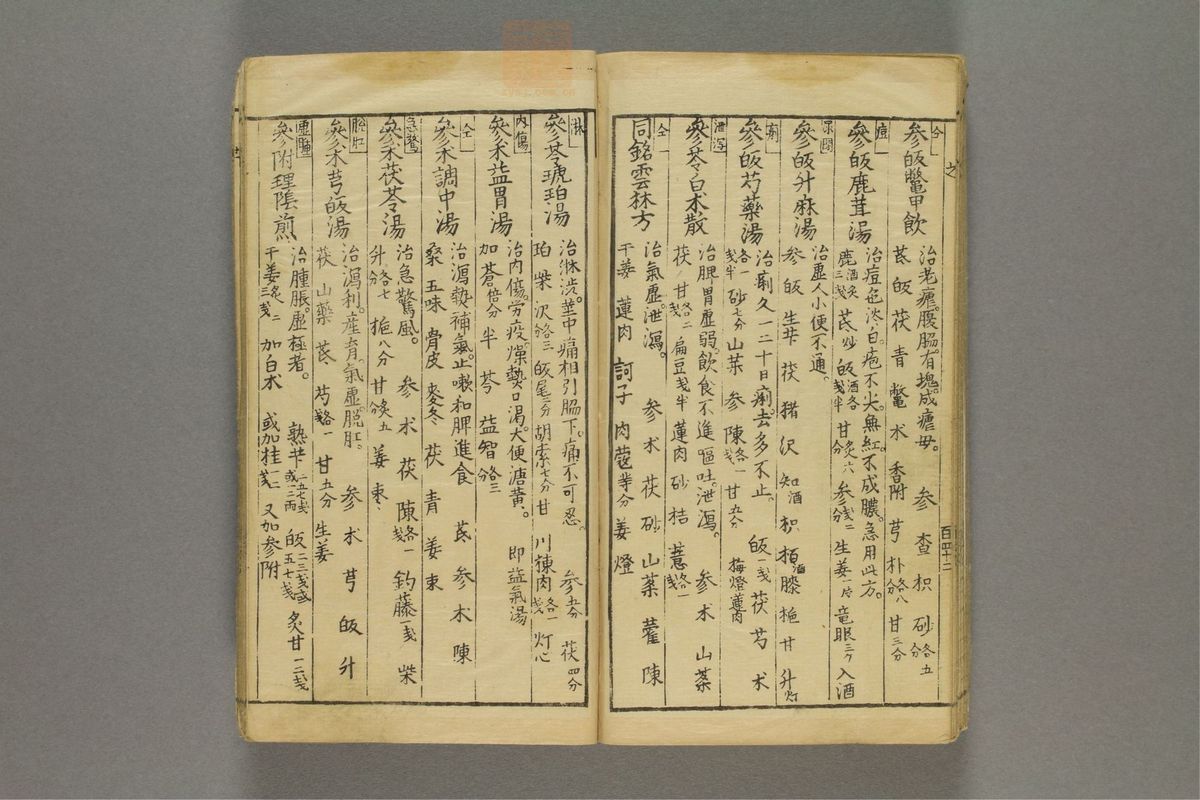 之
仝
參皈鱉甲飲
治老瘧。腹脇有塊。成瘧母。 参 査 枳 砂各五分
芪 皈 茯 青 鼈 术 香附 芎 朴各八分 甘三分
痘
參皈鹿茸湯
治痘色淡白。疱不尖。無紅。不成膿。急用此方。
鹿酒炙三戔 芪炒 皈酒各戔半 甘炙六分 参戔二分 生姜一片 竜眼三ケ 入酒
尿閉
參皈升麻湯
治虚人小便不通。
参 皈 生芐 茯 猪 沢 知酒 枳 栢酒 膝 梔 甘 升 灯
痢
參皈芍藥湯
治痢久一二十日。痢去多不止。 皈一戔 茯 芍 术
各一戔半 砂七分 山薬 参 陳各一戔 甘五分 梅 燈 蓮肉
泄瀉
參苓白术散
治脾胃虚弱。飲食不進。嘔吐。泄瀉。 参 术 山薬
茯 甘各二戔 扁豆戔半 蓮肉 砂 桔 薏各一戔
仝
同銘雲林方
治氣虚。泄瀉。 参 术 茯 砂 山薬 藿 陳
干姜 蓮肉 訶子 肉蔲等分 姜 燈
百四十二
淋
參苓琥珀湯
治淋渋。莖中痛相引脇下。痛不可忍。 参五分 茯四分
珀 柴 沢各三分 皈尾三分 胡索七分 甘 川楝肉各一戔 灯心
内傷
參术益胃湯
治内傷。労疫。燥熱口渇。大便溏黄。 即益氣湯
加 蒼倍分 半 芩 益智各三分
仝
參术調中湯
治瀉熱補氣。止嗽和脾進食 芪 参 术 陳
桑 五味 骨皮 麥冬 茯 青 姜 棗
急驚
參术茯苓湯
治急驚風。 参 术 茯 陳各一戔 釣藤一戔 柴
升各七分 梔八分 甘炙五分 姜 棗
脱肛
參术芎皈湯
治瀉利。産育。氣虚。脱肛。 参 术 芎 皈 升
茯 山藥 芪 芍各一戔 甘五分 生姜
虚腫
參附理陰煎
治腫脹。虚極者。 熟芐 或一二両 皈二三戔或五七戔 炙甘一二戔
干姜炙二三戔 加白术 或加桂戔一 又加参附